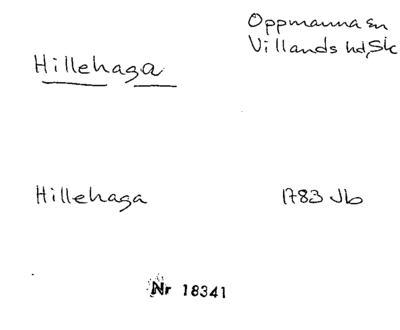 Oppmanna sn
Villands hd, Sk
Hillehaga
Hillehaga 1783 Jb
Nr 18341